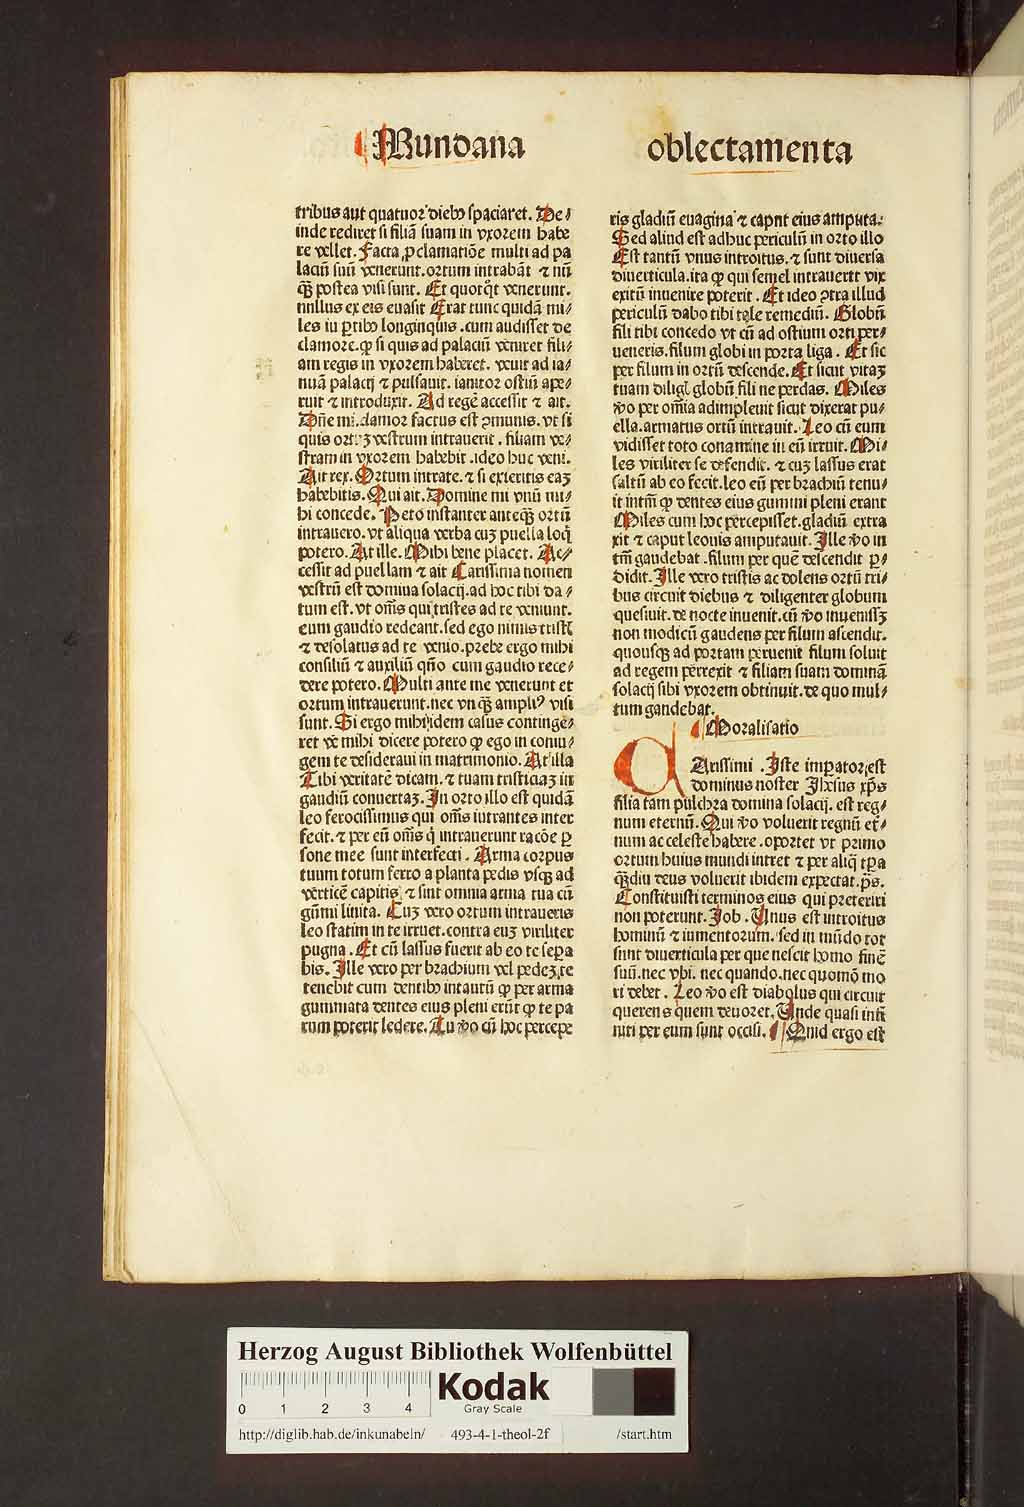 Mundana oblectamenta
tribus aut quatuor dieb⁹ spaciaret. De⸗
inde rediret si filiā suam in vxorem habe
re vellet. Facta ꝓclamatiōe multi ad pa
laciū suū venerunt. ortum intrabāt ⁊ nū
qꝫ postea visi sunt. Et quotqͦt venerunt.
nullus ex eis euasit Erat tunc quidā mi⸗
les in ꝑtib⁹ longinquis .cum audisset de
clamore. ꝙ si quis ad palaciū veniret fili⸗
am regis in vxorem haberet. venit ad ia⸗
nuā palacij ⁊ pulsauit. ianitor ostiū ape⸗
ruit ⁊ introduxit. Ad regē accessit ⁊ ait.
Dñe mi. clamor factus est ꝯmunis. vt si
quis ortuꝫ vestrum intrauerit . filiam ve⸗
stram in vxorem habebit .ideo huc veni.
Ait rex. Ortum intrate. ⁊ si exieritis eaꝫ
habebitis. Qui ait. Domine mi vnū mi⸗
hi concede. Peto instanter anteqꝫ ortū
intrauero. vt aliqua verba cuꝫ puella loq̄
potero. At ille. Mihi bene placet. Ac⸗
cessit ad puellam ⁊ ait Carissima nomen
vestrū est domina solacij. ad hoc tibi da⸗
tum est. vt om̄s qui tristes ad te veniunt.
cum gaudio redeant. sed ego nimis trist̄
⁊ desolatus ad te venio. prebe ergo mihi
consiliū ⁊ auxiliū qn̄o cum gaudio rece⸗
dere potero. Multi ante me venerunt et
ortum intrauerunt. nec vnqꝫ ampli⁹ visi
sunt. Si ergo mihi idem casus continge⸗
ret ve mihi dicere potero ꝙ ego in coniu⸗
gem te desideraui in matrimonio. At illa
Tibi veritatē dicam. ⁊ tuam tristiciaꝫ in
gaudiū conuertaꝫ. In orto illo est quidā
leo ferocissimus qui om̄s intrantes inter
fecit. ⁊ per eū om̄s q̄ intrauerunt racōe ꝑ
sone mee sunt interfecti . Arma corpus
tuum totum ferro a planta pedis vsqꝫ ad
verticē capitis ⁊ sint omnia arma tua cū
gūmi linita. Cuꝫ vero ortum intraueris
leo statim in te irruet. contra euꝫ viriliter
pugna . Et cū lassus fuerit ab eo te seꝑa
bis. Ille vero per brachium vel pedeꝫ te
tenebit cum dentib⁹ intantū ꝙ per arma
gummata dentes eius pleni erūt ꝙ te pa
rum poterit ledere. Tu v̄o cū hoc percepe
ris gladiū euagina ⁊ caput eius amputa.
Sed aliud est adhuc periculū in orto illo
Est tantū vnus introitus. ⁊ sunt diuersa
diuerticula. ita ꝙ qui semel intrauerit vix
exitū inuenire poterit . Et ideo ꝯtra illud
periculū dabo tibi tale remediū. Globū
fili tibi concedo vt cū ad ostium orti per⸗
ueneris. filum globi in porta liga . Et sic
per filum in ortū descende. Et sicut vitaꝫ
tuam diligl globū fili ne perdas. Miles
v̄o per om̄ia adimpleuit sicut dixerat pu⸗
ella. armatus ortū intrauit. Leo cū eum
vidisset toto conamine in eū irruit. Mi⸗
les viriliter se defendit. ⁊ cuꝫ lassus erat
saltū ab eo fecit. leo eū per brachiū tenu⸗
it intm̄ ꝙ dentes eius gummi pleni erant
Miles cum hoc percepisset. gladiū extra
xit ⁊ caput leonis amputauit. Ille v̄o in
tm̄ gaudebat .filum per quē descendit ꝑ⸗
didit. Ille vero tristis ac dolens ortū tri⸗
bus circuit diebus ⁊ diligenter globum
quesiuit. de nocte inuenit. cū v̄o inuenissꝫ
non modicū gaudens per filum ascendit.
quousqꝫ ad portam peruenit filum soluit
ad regem perrexit ⁊ filiam suam dominā
solacij sibi vxorem obtinuit. de quo mul⸗
tum gaudebat.
Moralisatio
CArissimi . Iste imꝑator est
dominus noster Jhesus xp̄s
filia tam pulchra domina solacij. est reg⸗
num eternū. Qui v̄o voluerit regnū et⸗
num ac celeste habere .oportet vt primo
ortum huius mundi intret ⁊ per aliq̄ tꝑa
qꝫdiu deus voluerit ibidem expectat. p̄s.
Constituisti terminos eius qui preteriri
non poterunt. Job . Unus est introitus
hominū ⁊ iumentorum. sed in mūdo tot
sunt diuerticula per que nescit homo finē
suū. nec vbi. nec quando. nec quomō mo
ri debet . Leo v̄o est diabolus qui circuit
querens quem deuoret. Unde quasi infi
niti per eum sunt occisi. Quid ergo est
Herzog August Bibliothek Wolfenbüttel
0 1 2 3 4
Kodak
Gray Scale
http://diglib.hab.de/inkunabeln/ 493-4-1-theol-2f /start.htm